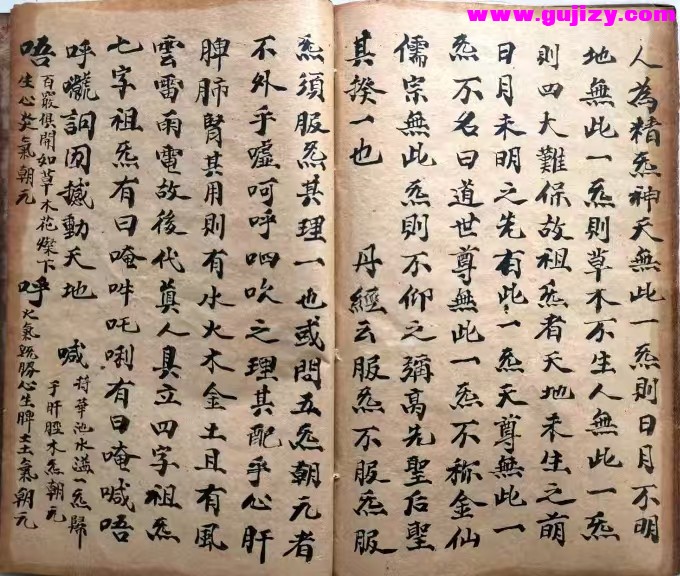 www.gujizy.com
人為精炁神天無此一炁則日月不明
地無此一炁則草木不生人無此一炁
則四大難保故祖炁者天地未生之前
日月未明之先有此一炁天尊無此一
炁不名曰道世尊無此一炁不称金仙
儒宗無此炁則不仰之彌高先聖后聖
其揆一也 丹經云服炁不服炁服
炁須服炁其理一也或問五炁朝元者
不外乎噓呵呼呬吹之理其配乎心肝
脾肺腎其用則有水火木金土且有風
雲雷雨電故後代真人具立四字祖炁
七字祖炁有曰唵吽吒唎有曰唵喊唔
呼嚨 動天地 喊
百竅俱開如草木花 下
唔生心 氣朝元
華池水满一炁歸
于肝 木炁朝元
呼 火氣 心生脾土氣朝元